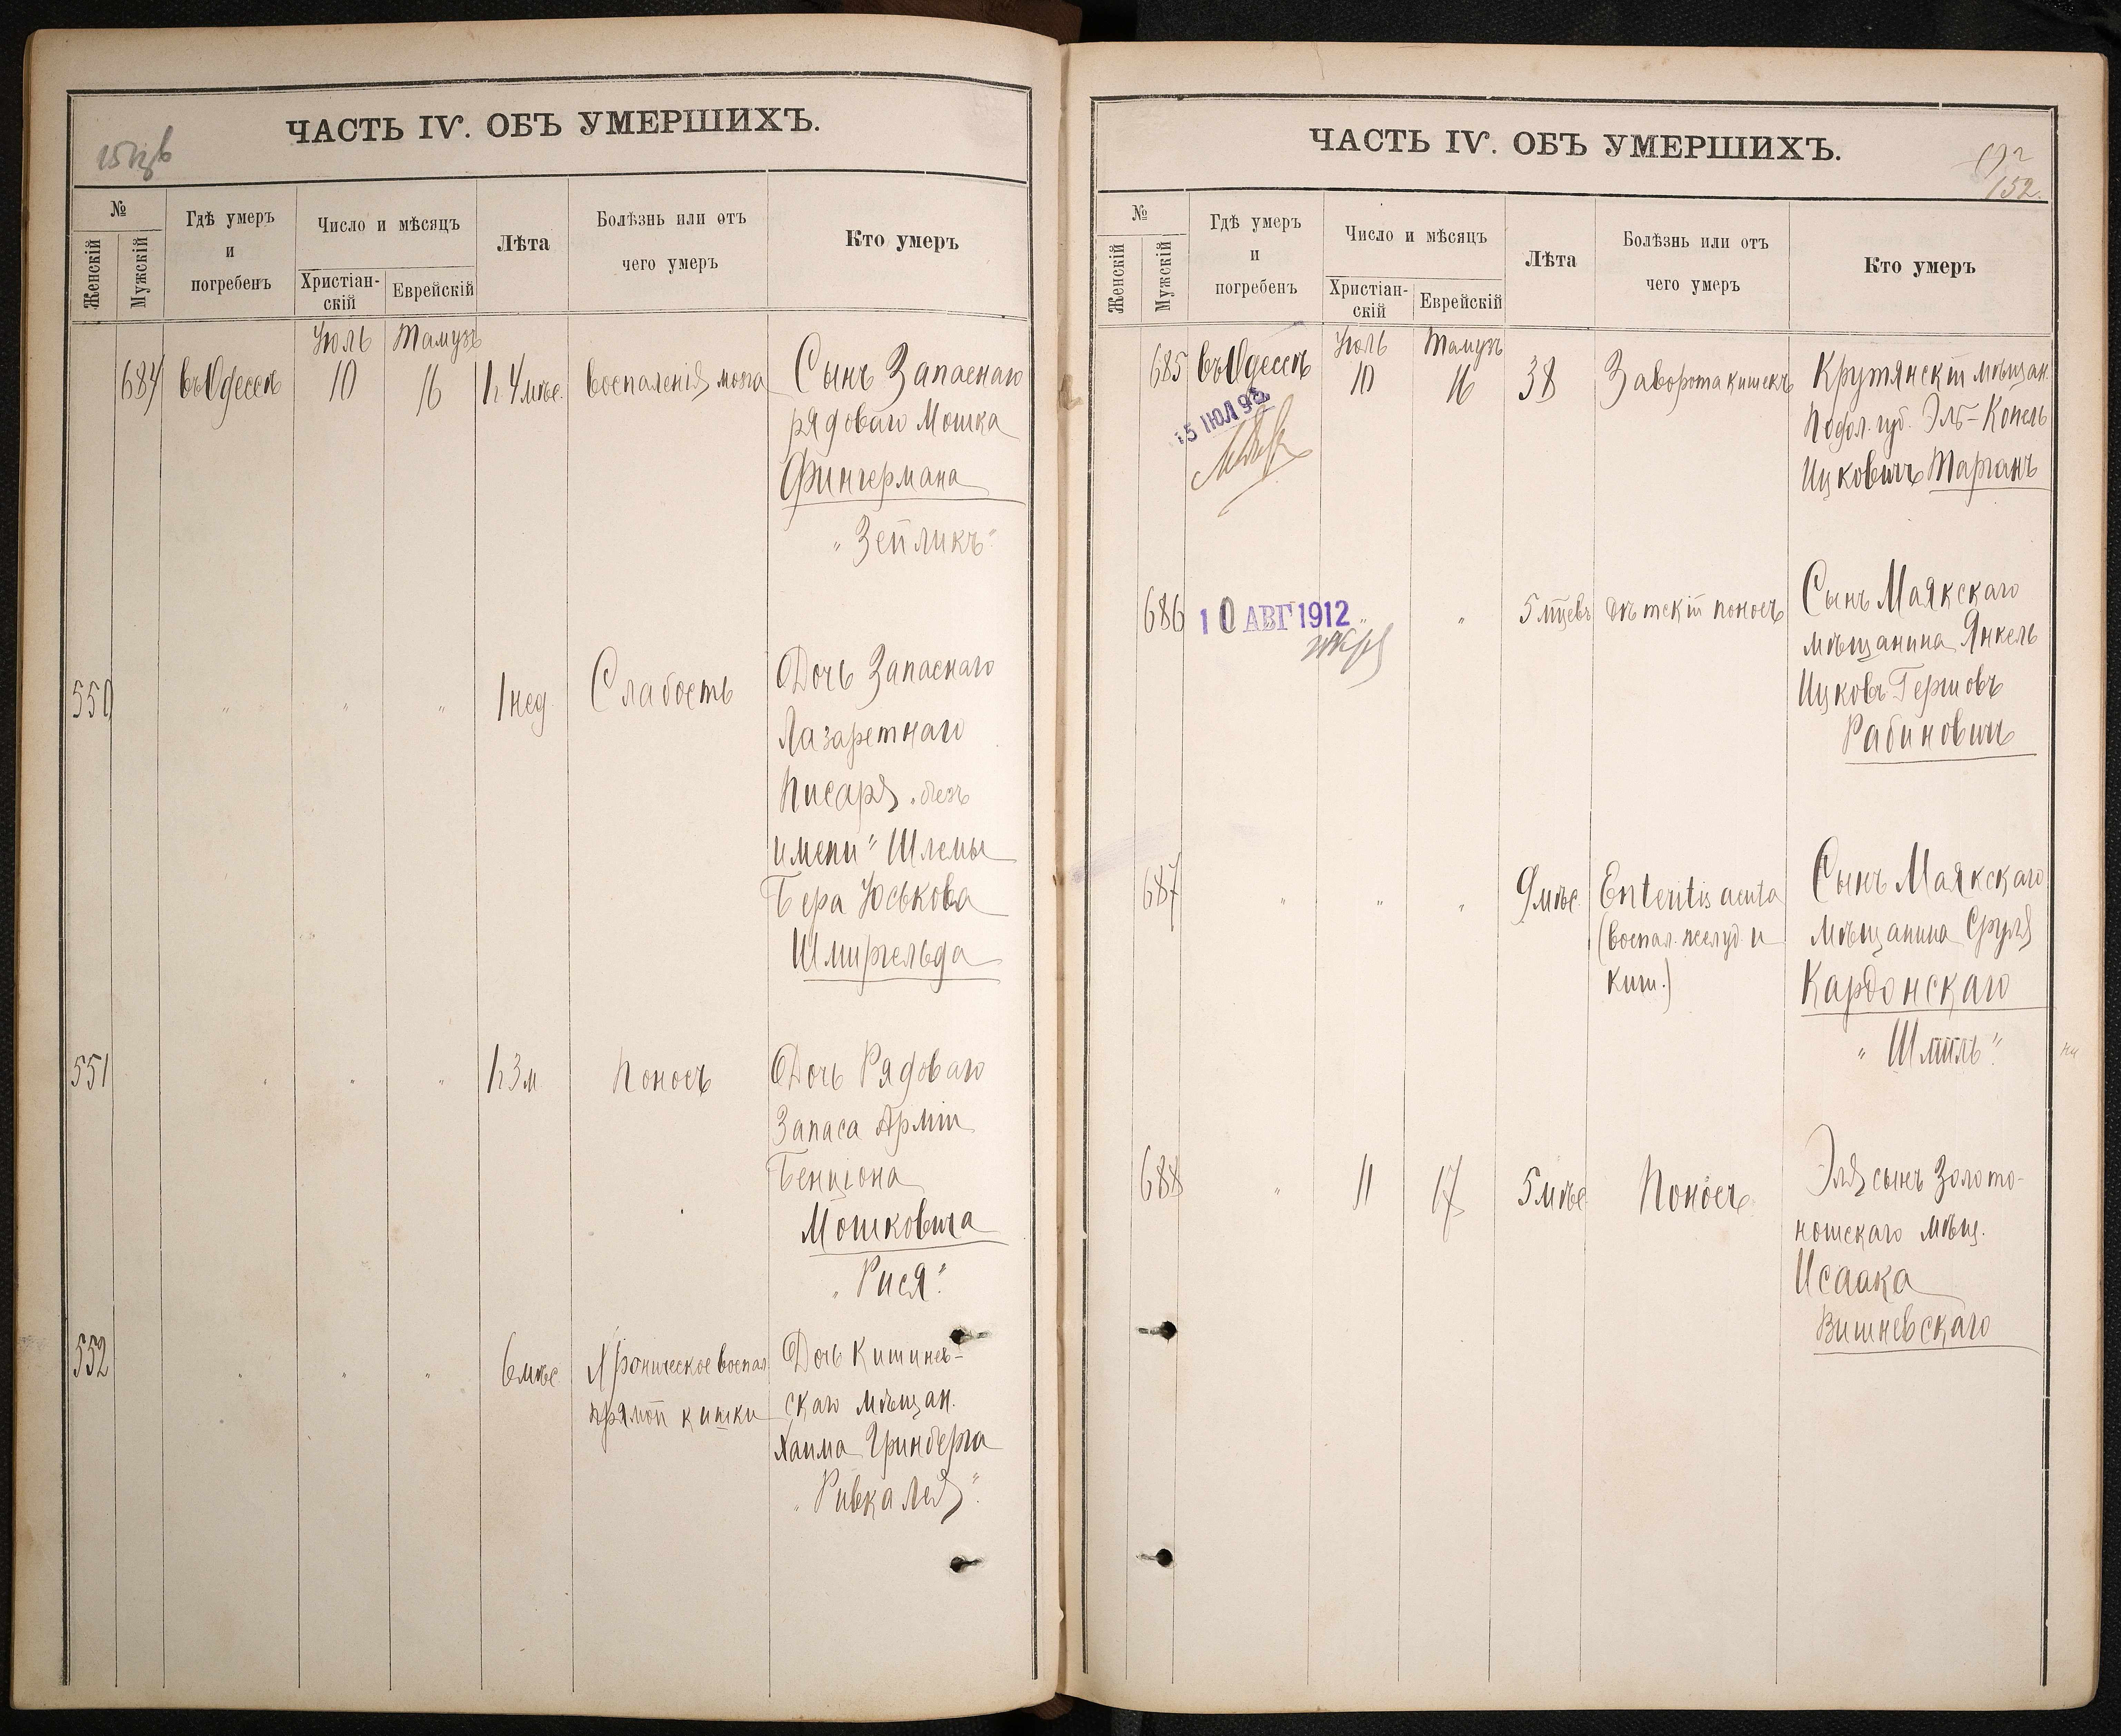 ЧАСТЬ IV. ОБЪ УМЕРШИХЪ.
№
Женскій
Мужскій
Гдѣ умеръ
и
погребенъ
Число и мѣсяцъ
Христіан-
скій
Еврейскій
Лѣта
Болѣзнь или отъ
чего умеръ
Кто умеръ
Іюль Тамузъ
684 въ Одессѣ 10 16 1 г 4 мѣс. воспаленія мозга Сынъ Запаснаго
рядоваго Мошка
Фингермана
"Зейликъ"
550 " " " 1 нед. Слабость Дочь Запаснаго
Лазаретнаго
Писаря "безъ
имени" Шлемы
Бера Юськова
Шмиргельда
551 " " " 1 г 3 м Поносъ Дочь Рядоваго
Запаса Арміи
Бенціона
Мошковича
"Рися"
552 " " " 6 мѣс Хроническое воспал. Дочь Кишинев-
прямой кишки скаго мѣщан.
Хаима Гринберга
"Ривка Лея"
ЧАСТЬ IV. ОБЪ УМЕРШИХЪ.
152.
№
Женскій
Мужскій
Гдѣ умеръ
и
погребенъ
Число и мѣсяцъ
Христіан-
скій
Еврейскій
Лѣта
Болѣзнь или отъ
чего умеръ
Кто умеръ
Іюль Тамузъ
685 въ Одессѣ 10 16 38 Заворота кишекъ Крутянскій мѣщан.
Подол. губ. Эль-Копель
Ицковичъ Тарганъ
15 ІЮЛ 98
686 10 АВГ 1912 " " 5 мцевъ Дѣтскій поносъ Сынъ Маякскаго
мѣщанина Янкель
Ицковъ Гершовъ
Рабиновичъ
687 " " " 9 мѣс Enteritis acuta Сынъ Маякскаго
(воспал. желуд. и мѣщанина Сруля
киш.) Кардонскаго
"Шлйль"
688 " 11 17 5 мѣс Поносъ Эля сынъ Золото-
ношскаго мѣщ.
Исаака
Вишневскаго